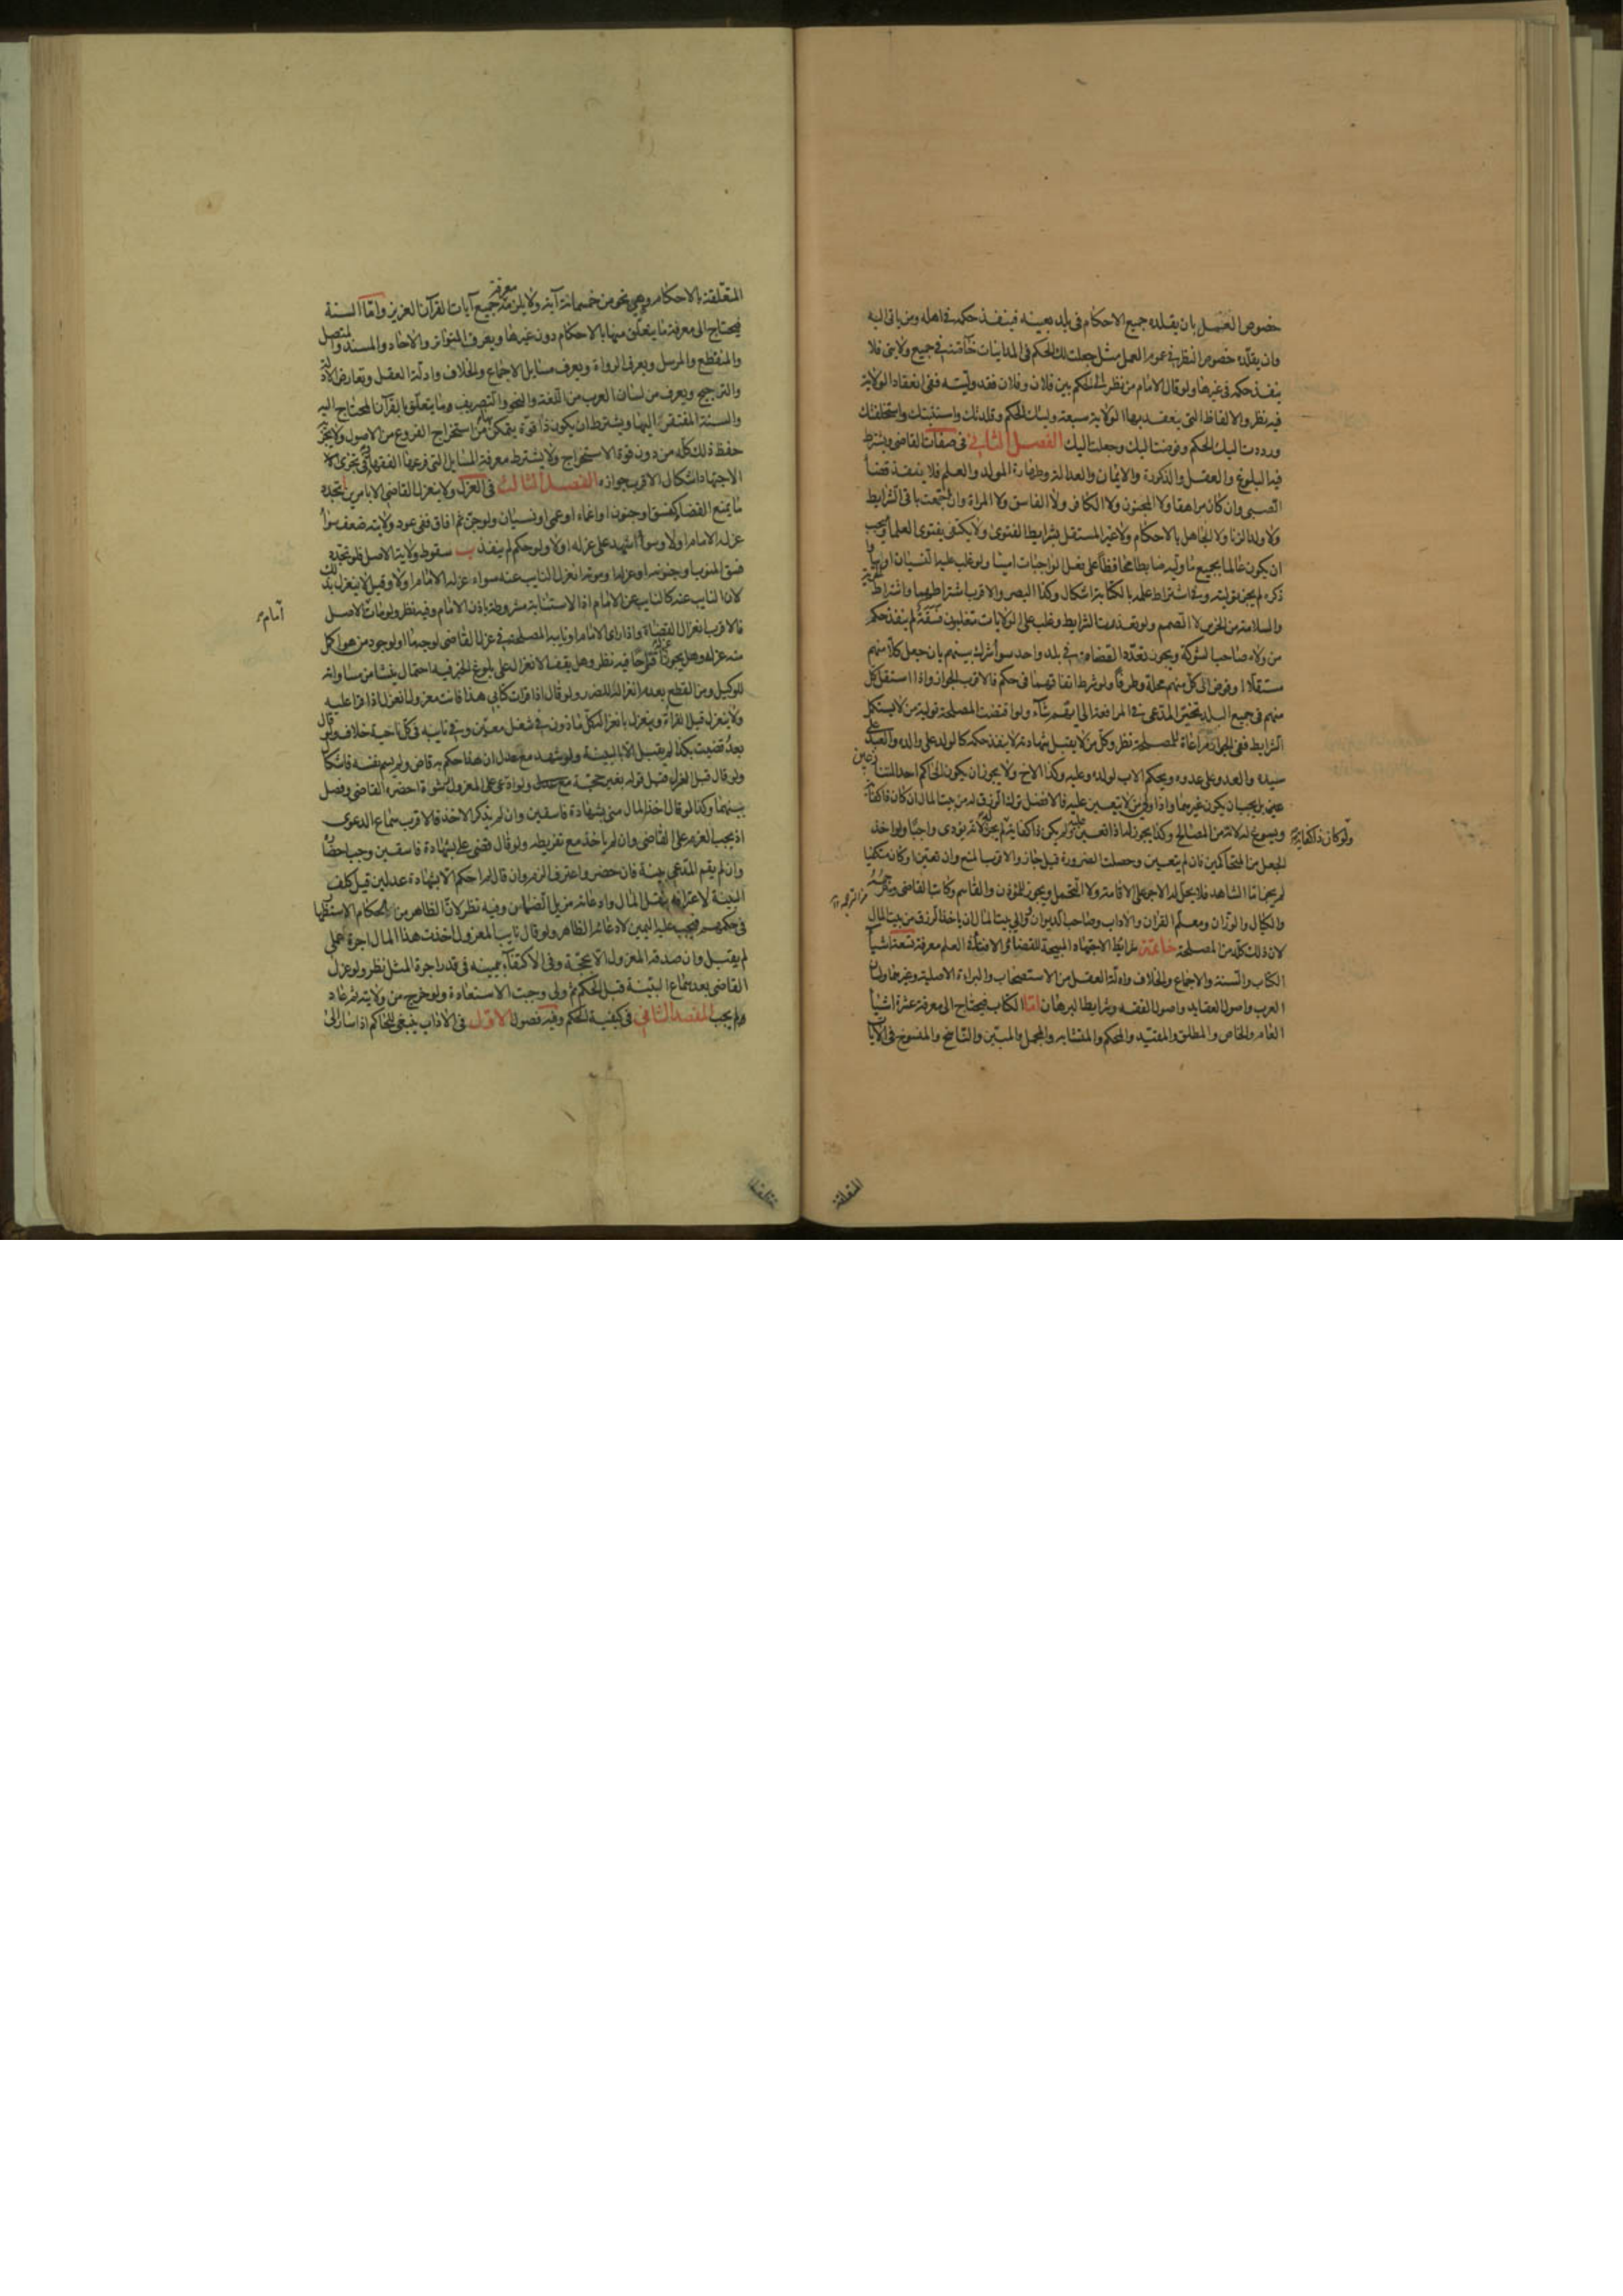 خصوص العمل بان يقلده جميع الاحكام فى بلد بعينه فينفذ حكمه فى اهله ومن ياتى اليه
وان يقلده خصوص النظر فى عموم العمل مثل جعلت لك الحكم فى المداينات خاصة فى جميع ولايتى فلا
ينفذ حكمه فى غيرها ولو قال الامام من نظر الحكم بين فلان وفلان فقد وليته ففى انعقاد الولاية
فيه نظر والالفاظ التى ينعقد بها الولاية سبعة وليتك الحكم وقلدتك واستنبتك واستخلفتك
ورددت اليك الحكم وفوضت اليك وجعلت اليك الفصل الثانى فى صفات القاضى ويشترط
فيه البلوغ والعقل والذكورة والايمان والعدالة وطهارة المولد والعلم فلا ينفذ قضأ
الصبى وان كان مراهقا ولا المجنون ولا الكافر ولا الفاسق ولا المراة وان اجتمعت باقى الشرايط
ولا ولد الزنا ولا الجاهل بالاحكام ولا غير المستقل بشرايط الفتوى ولا يكتفى بفتوى العلمأ ويجب
ان يكون عالما بجميع ما وليه ضابطا محافظاً على فعل الواجبات امينا ولو غلب عليه النسيان او
ذكره لم يجز توليته وفى اشتراط علمه بالكتابة اشكال وكذا البصر والاقرب اشتراطهما واشتراط
والسلامة من الخرس لا الصمم ولو تعذرت الشرايط وغلب على الولايات متغلبون فسقة لم ينفذ حكم
من ولاه صاحب الشوكة ويجوز تعدد القضاة فى بلد واحد سوأ شرك بينهم بان جعل كلا منهم
مستقلا او فوض الى كل منهم محلة وطرفا ولو شرط اتفاقهما فى حكم فالاقرب الجواز واذا استقل كل
منهم فى جميع البلد تخير المدعى فى المرافعة الى ايهم شآء ولو اقتضت المصلحة تولية من لا يستكمل
الشرايط ففى الجواز مراعاة للمصلحة نظر وكل من لا يقبل شهادته لا ينفذ حكمه كالولد على والده والعبد على
سيده والعدو على عدوه ويحكم الاب لولده وعليه وكذا الاخ ولا يجوز ان يكون الحاكم احد المتنازعين
بل يجب ان يكون غيرهما واذا ولى من لا يتعين عليه فالافضل ترك الرزق له من بيت المال ان كان ذا كفاية
ويسوغ له لانه من المصالح وكذا يجوز له اذا تعين عليه ولم يكن ذا كفاية لم يجز لانه يؤدى واجبا ولو اخذ
ولو كان ذا كفاية
الجعل من المتحاكمين فان لم يتعين وحصلت الضرورة قيل جاز والاقرب المنع وان تعين او كان مكفيا
لم يجز اما الشاهد فلا يحل له الاجر على الاقامة ولا التحمل ويجوز للمؤذن والقاسم وكاتب القاضى
والكيال والوزان ومعلم القران والاداب وصاحب الديوان ووالى بيت المال ان ياخذ الرزق من بيت المال
لان ذلك كله من المصلحة خاتمة شرايط الاجتهاد المبيحة للقضاء والافتأ فى العلم معرفة تسعة اشيأ
الكتاب والسنة والاجماع والخلاف وادلة العقل من الاستصحاب والبراءة الاصلية وغيرهما ولسان
العرب واصول العقايد واصول الفقه وشرايط البرهان اما الكتاب فيحتاج الى معرفة عشرة اشيأ
العام والخاص والمطلق والمقيد والمحكم والمتشابه والمجمل والمبين والناسخ والمنسوخ فى الايات
المتعلقة
المتعلقة بالاحكام وهى نحو من خمسمائة آية ولا يلزمه معرفة جميع آيات القرآن العزيز واما السنة
فيحتاج الى معرفة ما يتعلق منها بالاحكام دون غيرها ويعرف المتواتر والاحاد والمسند والمتصل
والمنقطع والمرسل ويعرف الرواة ويعرف مسايل الاجماع والخلاف وادلة العقل وتعارض الادلة
والتراجيح ويعرف من لسان العرب من اللغة والنحو والتصريف وما يتعلق بالقرآن المحتاج اليه
والسنة المفتقر اليها ويشترط ان يكون ذا قوة يتمكن بها من استخراج الفروع من الاصول ولا يكفى
حفظ ذلك كله من دون قوة الاستخراج ولا يشترط معرفة المسايل التى فرعها الفقهاء وفى تجزى
الاجتهاد اشكال الاقرب جوازه الفصل الثالث فى العزل ولا ينعزل القاضى الا بامرين ا تجدد
ما يمنع القضا كفسق او جنون او اغماء او عمى او نسيان ولو جن ثم افاق ففى عود ولايته ضعف سوأ
عزله الامام او لا وسوأ اشهد على عزله او لا ولو حكم لم ينفذ ب سقوط ولاية الاصل فلو تجدد
فسق المنوب او جنونه او عزله او موته انعزل النايب عنه سواء عزله الامام او لا وقيل لا ينعزل بذلك
لان النايب عنه كالنايب عن الامام اذ الاستنابة مشروطة باذن الامام وفيه نظر ولو مات الاصل
امام
فالاقرب انعزال القضاة واذا راى الامام او نايبه المصلحة فى عزل القاضى لوجه ما او لوجود من هو اكمل
منه عزله وهل يجوز عزله اقتراحا فيه نظر وهل يقف الانعزال على بلوغ الخبر فيه احتمال ينشا من مساواته
للوكيل ومن القطع بعدم انعزاله للضرر ولو قال اذا قرات كتابى هذا فانت معزول انعزل اذا قرا عليه
ولا ينعزل قبل القراة وينعزل بانعزاله كل ماذون فى شغل معين وفى نايبه فى كل ناحية خلاف ولو قال
بعد قضيت بكذا لم يقبل الا بالبينة ولو شهد مع عدل ان هذا حكم به قاض ولم يسم نفسه فاشكال
ولو قال قبل العزل قبل قوله بغير حجة ولو ادعى على المعزول رشوة احضره القاضى وفصل
بينهما وكذا لو قال اخذ المال منى بشهادة فاسقين وان لم يذكر الاخذ فالاقرب سماع الدعوى
اذ يجب الغرم على القاضى وان لم ياخذ مع تفريطه ولو قال قضى على بشهادة فاسقين وجب احضاره
وان لم يقم المدعى بينة فان حضر واعترف الزم وان قال لم احكم الا بشهادة عدلين قيل كلف
البينة لاعترافه بنقل المال وادعائه مزيل الضمان وفيه نظر لان الظاهر من الحكام الاستظهار
فى حكمهم فيجب عليه اليمين لادعائه الظاهر ولو قال نايب المعزول اخذت هذا المال اجرة عملى
لم يقبل وان صدقه المعزول الا بحجة وفى الاكتفآء بيمينه فى قدر اجرة المثل نظر ولو عزل
القاضى بعد سماع البينة قبل الحكم ثم ولى وجبت الاستعادة ولو خرج من ولايته ثم عاد
لم يجب المقصد الثانى فى كيفية الحكم وفيه فصول الاول فى الاداب ينبغى للحاكم اذا سار الى